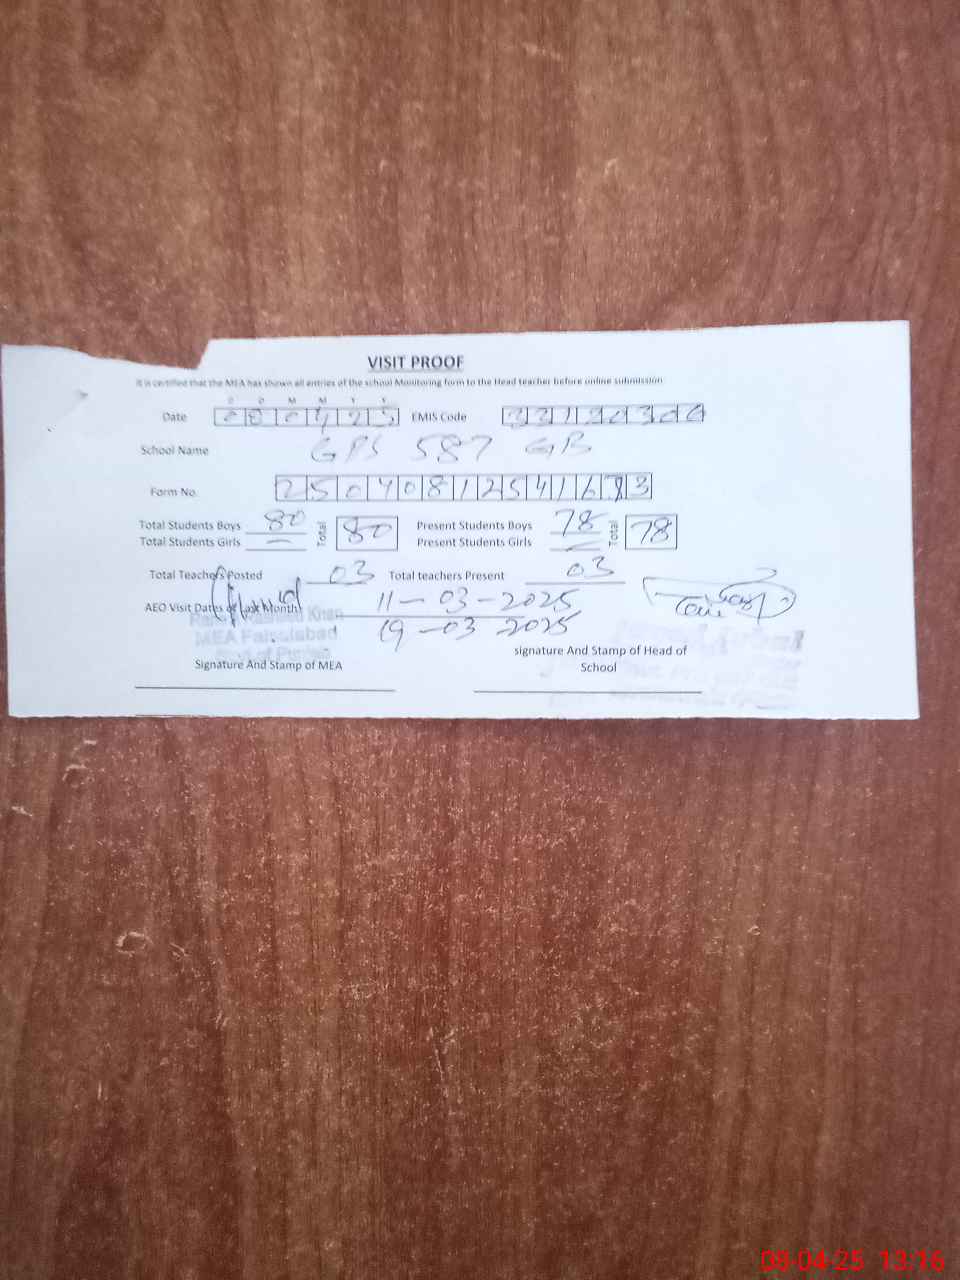 VISIT PROOF
It is certified that the MEA has shown all entries of the school Monitoring form to the Head teacher before online submission
D D M M Y Y
Date 080425 EMIS Code
School Name GPS 587 GB
Form No. 2504081254167 3
Total Students Boys 80 Total 80 Present Students Boys 78 Total 78
Total Students Girls — Present Students Girls —
Total Teachers Posted 03 Total teachers Present 03
AEO Visit Dates of Last Month 11-03-2025
19-03 2025
Rashid Khan
MEA Faisalabad
Signature And Stamp of MEA
signature And Stamp of Head of
School
08-04-25 13:16